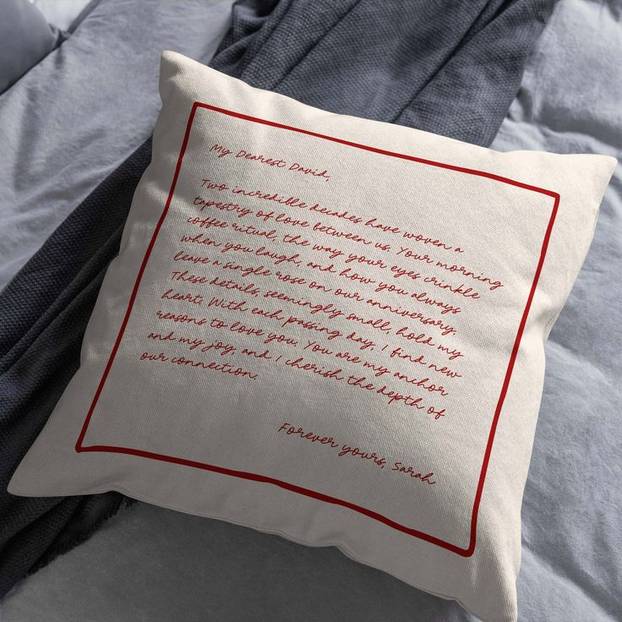 My Dearest David,
Two incredible decades have woven a
tapestry of love between us. Your morning
coffee ritual, the way your eyes crinkle
when you laugh, and how you always
leave a single rose on our anniversary.
These details, seemingly small, hold my
heart. With each passing day, I find new
reasons to love you. You are my anchor
and my joy, and I cherish the depth of
our connection.
Forever yours, Sarah